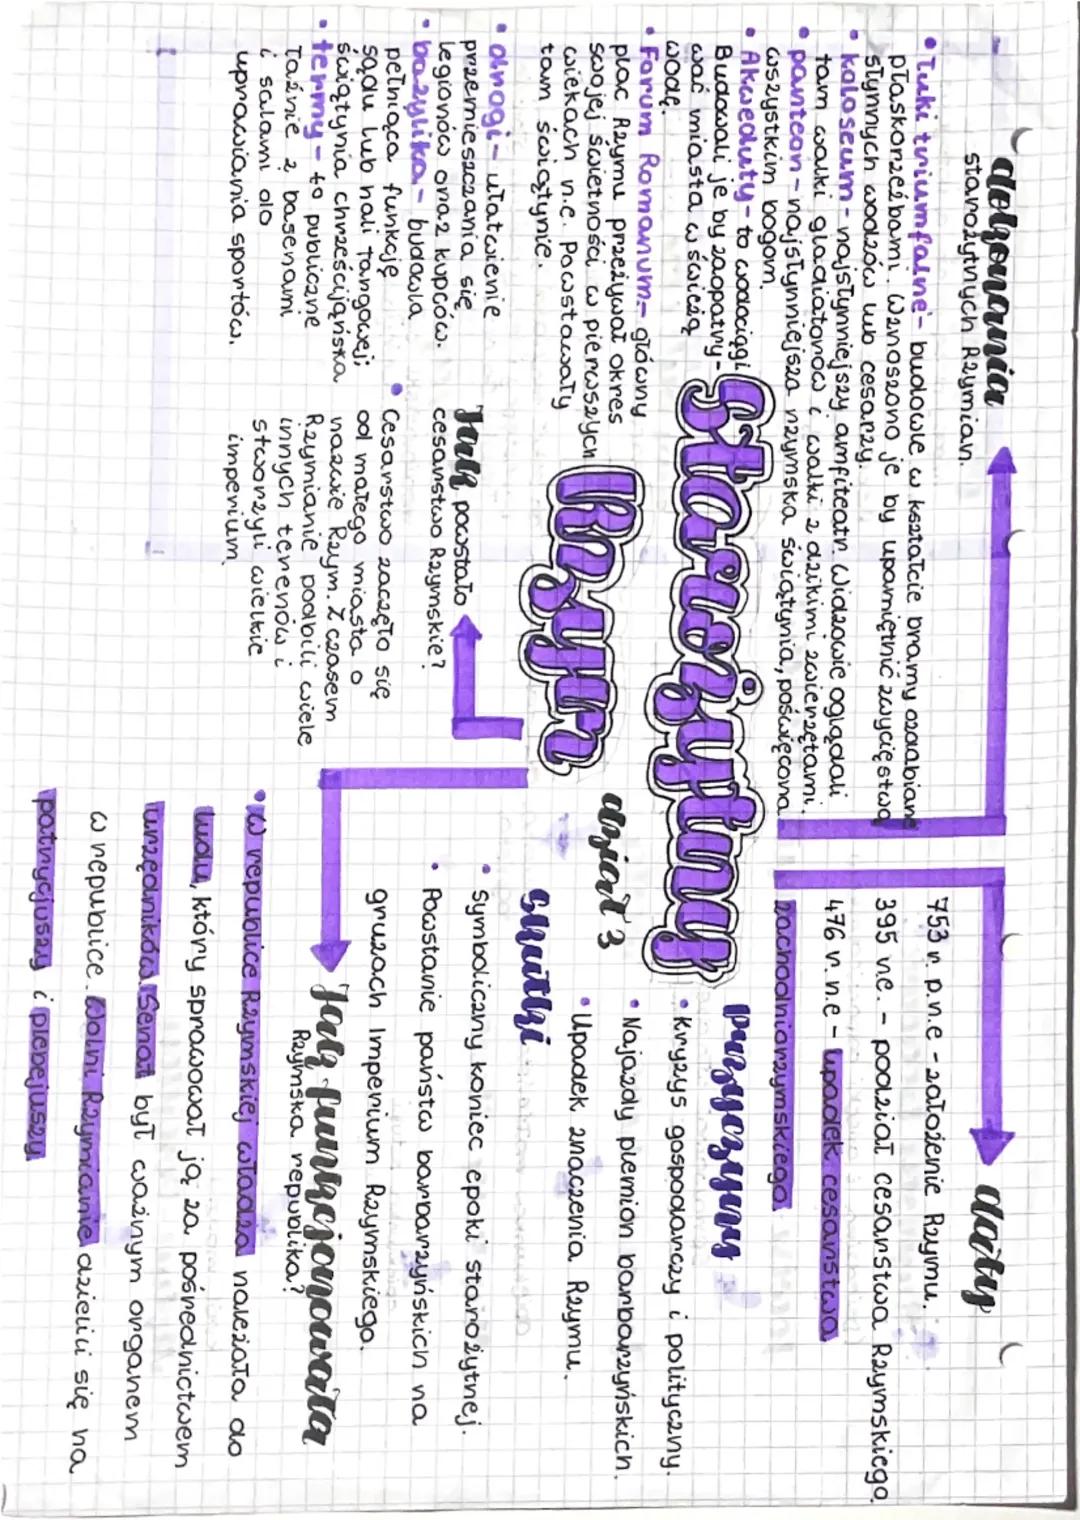 dokonania
starożytnych Rzymian.
• Łuki triumfalne - budowle w kształcie bramy ozdabiane
płaskorzeźbami. Wznoszono je by upamiętnić zwycięstwa
słynnych wodzów lub cesarzy.
• koloseum - najsłynniejszy amfiteatr. Widzowie oglądali
tam walki gladiatorów i walki z dzikimi zwierzętami.
• panteon - najsłynniejsza rzymska świątynia, poświęcona
wszystkim bogom.
• Akweduty - to wodociągi
Budowali je by zaopatry-
wać miasta w świeżą
wodę.
• Forum Romanum - główny
plac Rzymu przeżywał okres
swojej świetności w pierwszych
wiekach n.e. Powstawały
tam świątynie.
• drogi - ułatwienie
przemieszczania się
legionów oraz kupców.
• bazylika - budowla
pełniąca funkcję
sądu lub hali targowej;
świątynia chrześcijańska
• termy - to publiczne
Łaźnie z basenami
i salami do
uprawiania sportów.
Starożytny
Rzym
dział 3
Jak powstało
cesarstwo Rzymskie?
• Cesarstwo zaczęło się
od małego miasta o
nazwie Rzym. Z czasem
Rzymianie podbili wiele
innych terenów i
stworzyli wielkie
imperium
daty
753 r. p.n.e - założenie Rzymu.
395 n.e. - podział cesarstwa Rzymskiego.
476 r. n.e - upadek cesarstwa
zachodniorzymskiego
przyczyny
• Kryzys gospodarczy i polityczny.
• Najazdy plemion barbarzyńskich.
• Upadek znaczenia Rzymu.
skutki
• Symboliczny koniec epoki starożytnej.
• Powstanie państw barbarzyńskich na
gruzach Imperium Rzymskiego.
Jak funkcjonowała
Rzymska republika?
• W republice Rzymskiej władza należała do
ludu, który sprawował ją za pośrednictwem
urzędników. Senat był ważnym organem
w republice. Wolni Rzymianie dzielili się na
patrycjuszy i plebejuszy